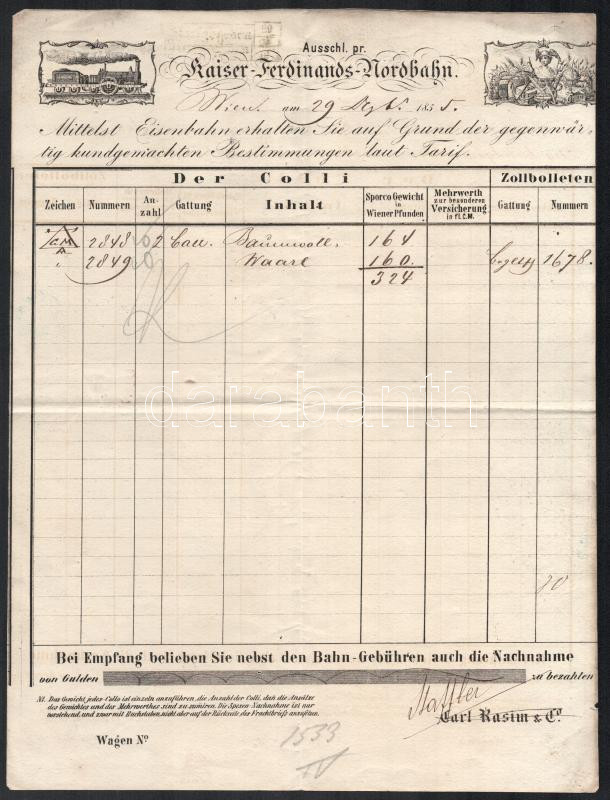 Ausschl. pr.
Kaiser-Ferdinands-Nordbahn.
Wien am 29 185
Mittelst Eisenbahn erhalten Sie auf Grund der gegenwär-
tig kundgemachten Bestimmungen laut Tarif.
Der Colli Zollbolleten
Zeichen Nummern An-zahl Gattung Inhalt Sporco Gewicht in Wiener Pfunden Mehrwerth zur besonderen Versicherung in fl. C.M. Gattung Nummern
2848 2 Baumwoll 164
2849 Waare 160. 1678.
324
darabanth
Bei Empfang belieben Sie nebst den Bahn-Gebühren auch die Nachnahme
von Gulden zu bezahlen
NB. Das Gewicht jedes Collo ist einzeln anzuführen, die Anzahl der Colli, dan die Ansätze
des Gewichtes und des Mehrwerthes sind zu sumiren. Die Spesen-Nachnahme ist nur
vorstehend, und zwar mit Buchstaben, nicht aber auf der Rückseite des Frachtbriefs anzusetzen.
Carl Rasim & Co.
Wagen No
1533